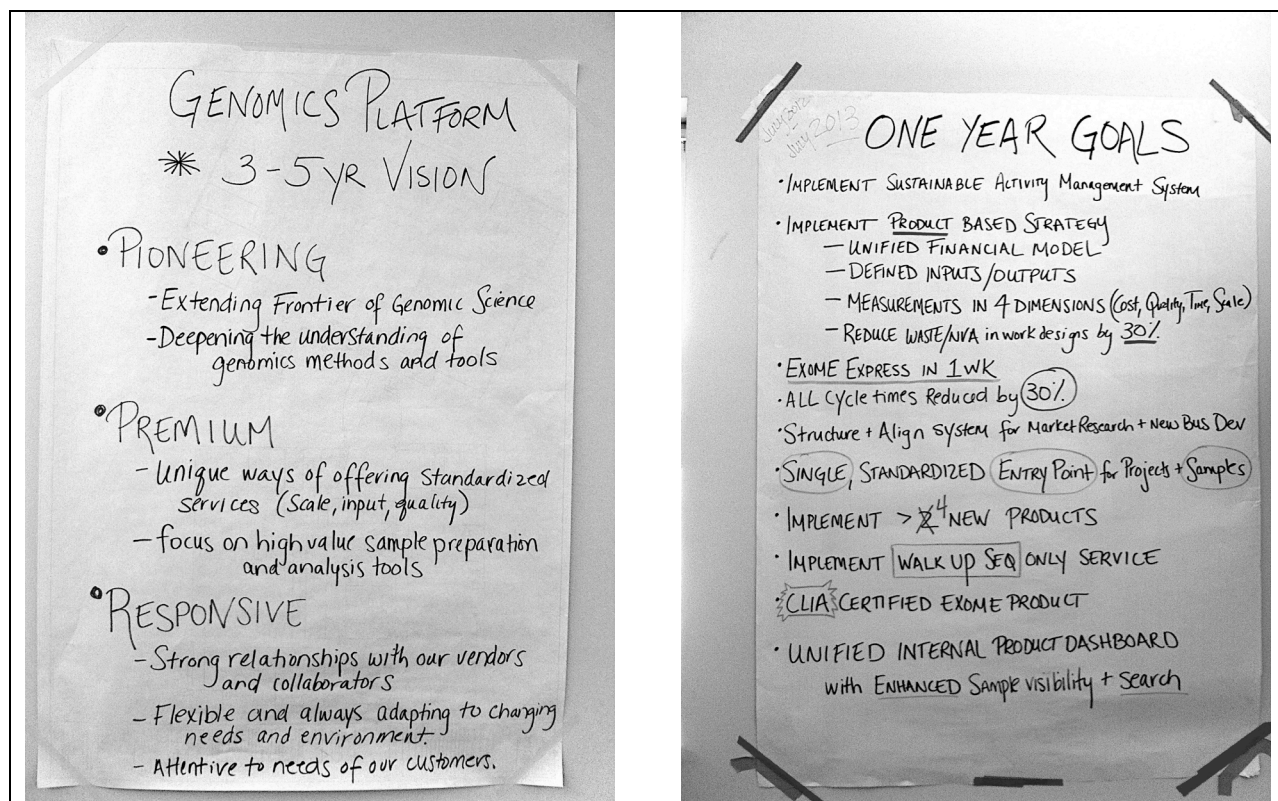 GENOMICS PLATFORM
* 3-5 YR VISION
• PIONEERING
- Extending Frontier of Genomic Science
- Deepening the understanding of
genomics methods and tools
• PREMIUM
- Unique ways of offering standardized
services (Scale, input, quality)
- focus on high value sample preparation
and analysis tools
• RESPONSIVE
- Strong relationships with our vendors
and collaborators
- Flexible and always adapting to changing
needs and environment.
- Attentive to needs of our customers.
July 2012
- July 2013
ONE YEAR GOALS
• IMPLEMENT SUSTAINABLE Activity Management System
• IMPLEMENT PRODUCT BASED STRATEGY
- UNIFIED FINANCIAL MODEL
- DEFINED INPUTS/OUTPUTS
- MEASUREMENTS IN 4 DIMENSIONS (Cost, Quality, Time, Scale)
- REDUCE WASTE/NVA in work designs by 30%
• EXOME EXPRESS IN 1WK
• ALL Cycle times Reduced by 30%
• Structure + Align System for Market Research + New Bus Dev
• SINGLE, STANDARDIZED ENTRY POINT for Projects + Samples
• IMPLEMENT > 2 4 NEW PRODUCTS
• IMPLEMENT WALK UP SEQ ONLY SERVICE
• CLIA CERTIFIED EXOME PRODUCT
• UNIFIED INTERNAL PRODUCT DASHBOARD
with ENHANCED Sample visibility + Search